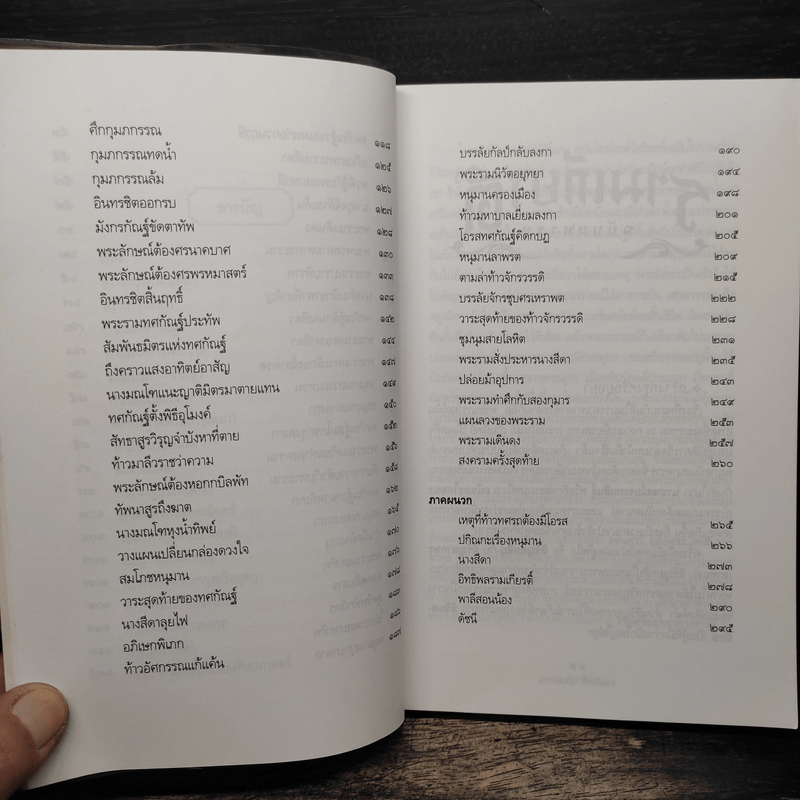 ศึกกุมภกรรณ ๑๑๘
กุมภกรรณทดน้ำ ๑๒๕
กุมภกรรณล้ม ๑๒๖
อินทรชิตออกรบ ๑๒๗
มังกรกัณฐ์ขัดตาทัพ ๑๒๘
พระลักษณ์ต้องศรนาคบาศ ๑๓๐
พระลักษณ์ต้องศรพรหมาสตร์ ๑๓๓
อินทรชิตสิ้นฤทธิ์ ๑๓๘
พระรามทศกัณฐ์ประทัพ ๑๔๒
สัมพันธมิตรแห่งทศกัณฐ์ ๑๔๔
ถึงคราวแสงอาทิตย์อาสัญ ๑๔๗
นางมณโฑแนะญาติมิตรมาตายแทน ๑๔๙
ทศกัณฐ์ตั้งพิธีอุโมงค์ ๑๕๐
สัทธาสูรวิรุญจำบังหาที่ตาย ๑๕๒
ท้าวมาลีวราชว่าความ ๑๕๖
พระลักษณ์ต้องหอกกบิลพัท ๑๕๘
ทัพนาสูรถึงฆาต ๑๖๒
นางมณโฑหุงน้ำทิพย์ ๑๖๕
วางแผนเปลี่ยนกล่องดวงใจ ๑๗๐
สมโภชหนุมาน ๑๗๖
วาระสุดท้ายของทศกัณฐ์ ๑๗๘
นางสีดาลุยไฟ ๑๘๓
อภิเษกพิเภก ๑๘๖
ท้าวอัศกรรณแก้แค้น ๑๘๗
บรรลัยกัลป์กลับลงกา ๑๙๐
พระรามนิวัตอยุทยา ๑๙๔
หนุมานครองเมือง ๑๙๘
ท้าวมหาบาลเยี่ยมลงกา ๒๐๑
โอรสทศกัณฐ์คิดกบฏ ๒๐๕
หนุมานลาพรต ๒๐๙
ตามล่าท้าวจักรวรรดิ ๒๑๕
บรรลัยจักรชุบศรเหราพต ๒๒๒
วาระสุดท้ายของท้าวจักรวรรดิ ๒๒๘
ชุมนุมสายโลหิต ๒๓๑
พระรามสั่งประหารนางสีดา ๒๓๕
ปล่อยม้าอุปการ ๒๔๓
พระรามทำศึกกับสองกุมาร ๒๔๙
แผนลวงของพระราม ๒๕๓
พระรามเดินดง ๒๕๗
สงครามครั้งสุดท้าย ๒๖๐
ภาคผนวก
เหตุที่ท้าวทศรถต้องมีโอรส ๒๖๕
ปกิณกะเรื่องหนุมาน ๒๖๖
นางสีดา ๒๗๓
อิทธิพลรามเกียรติ์ ๒๗๘
พาลีสอนน้อง ๒๙๐
ดัชนี ๒๙๕